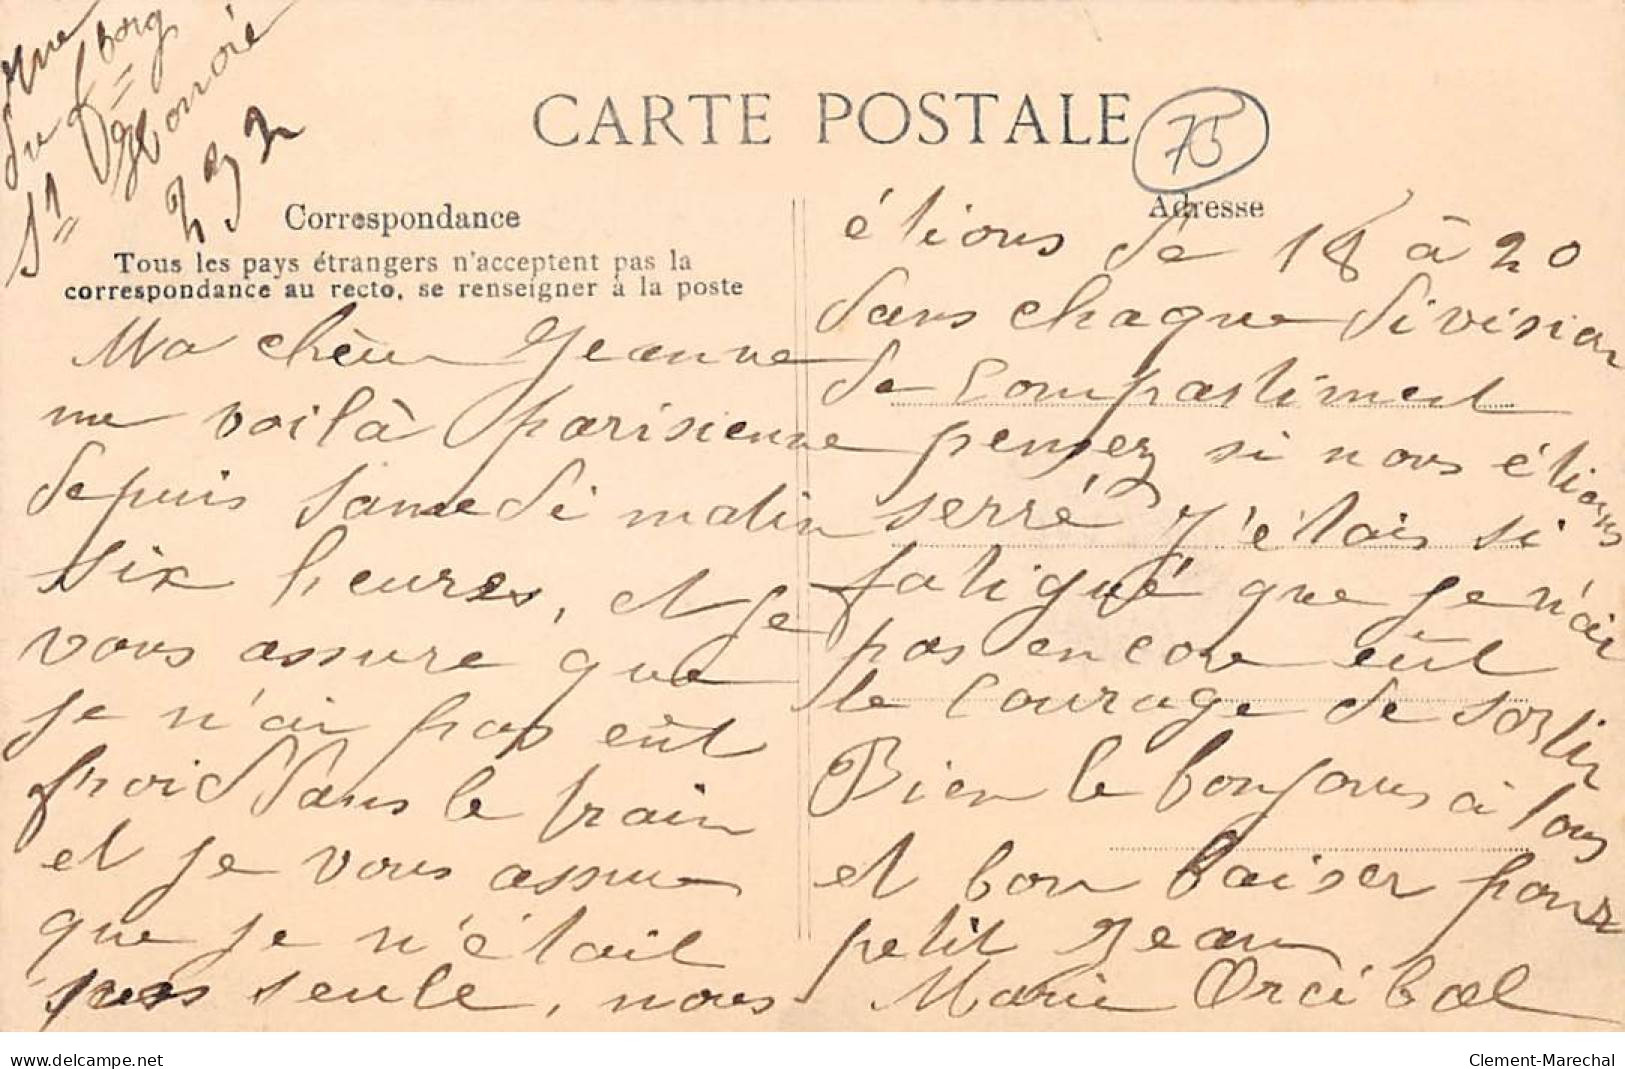 Rue
du fborg
St Honoré
232
CARTE POSTALE
75
Correspondance
Tous les pays étrangers n'acceptent pas la
correspondance au recto, se renseigner à la poste
Adresse
Ma chèr Jeanne
me voilà parisienne
depuis samedi matin
six heures, et je
vous assure que
je n'ai pas eût
froid dans le train
et je vous assure
que je n'était
pas seule, nous
étions de 18 à 20
dans chaque division
de compartiment
pensez si nous étions
serré j'étais si
fatigué que je n'ai
pas encore eût
le courage de sortir
Bien le bonjours à tous
et bon baiser pour
petit Jean
Marie Orcibal
www.delcampe.net
Clement-Marechal